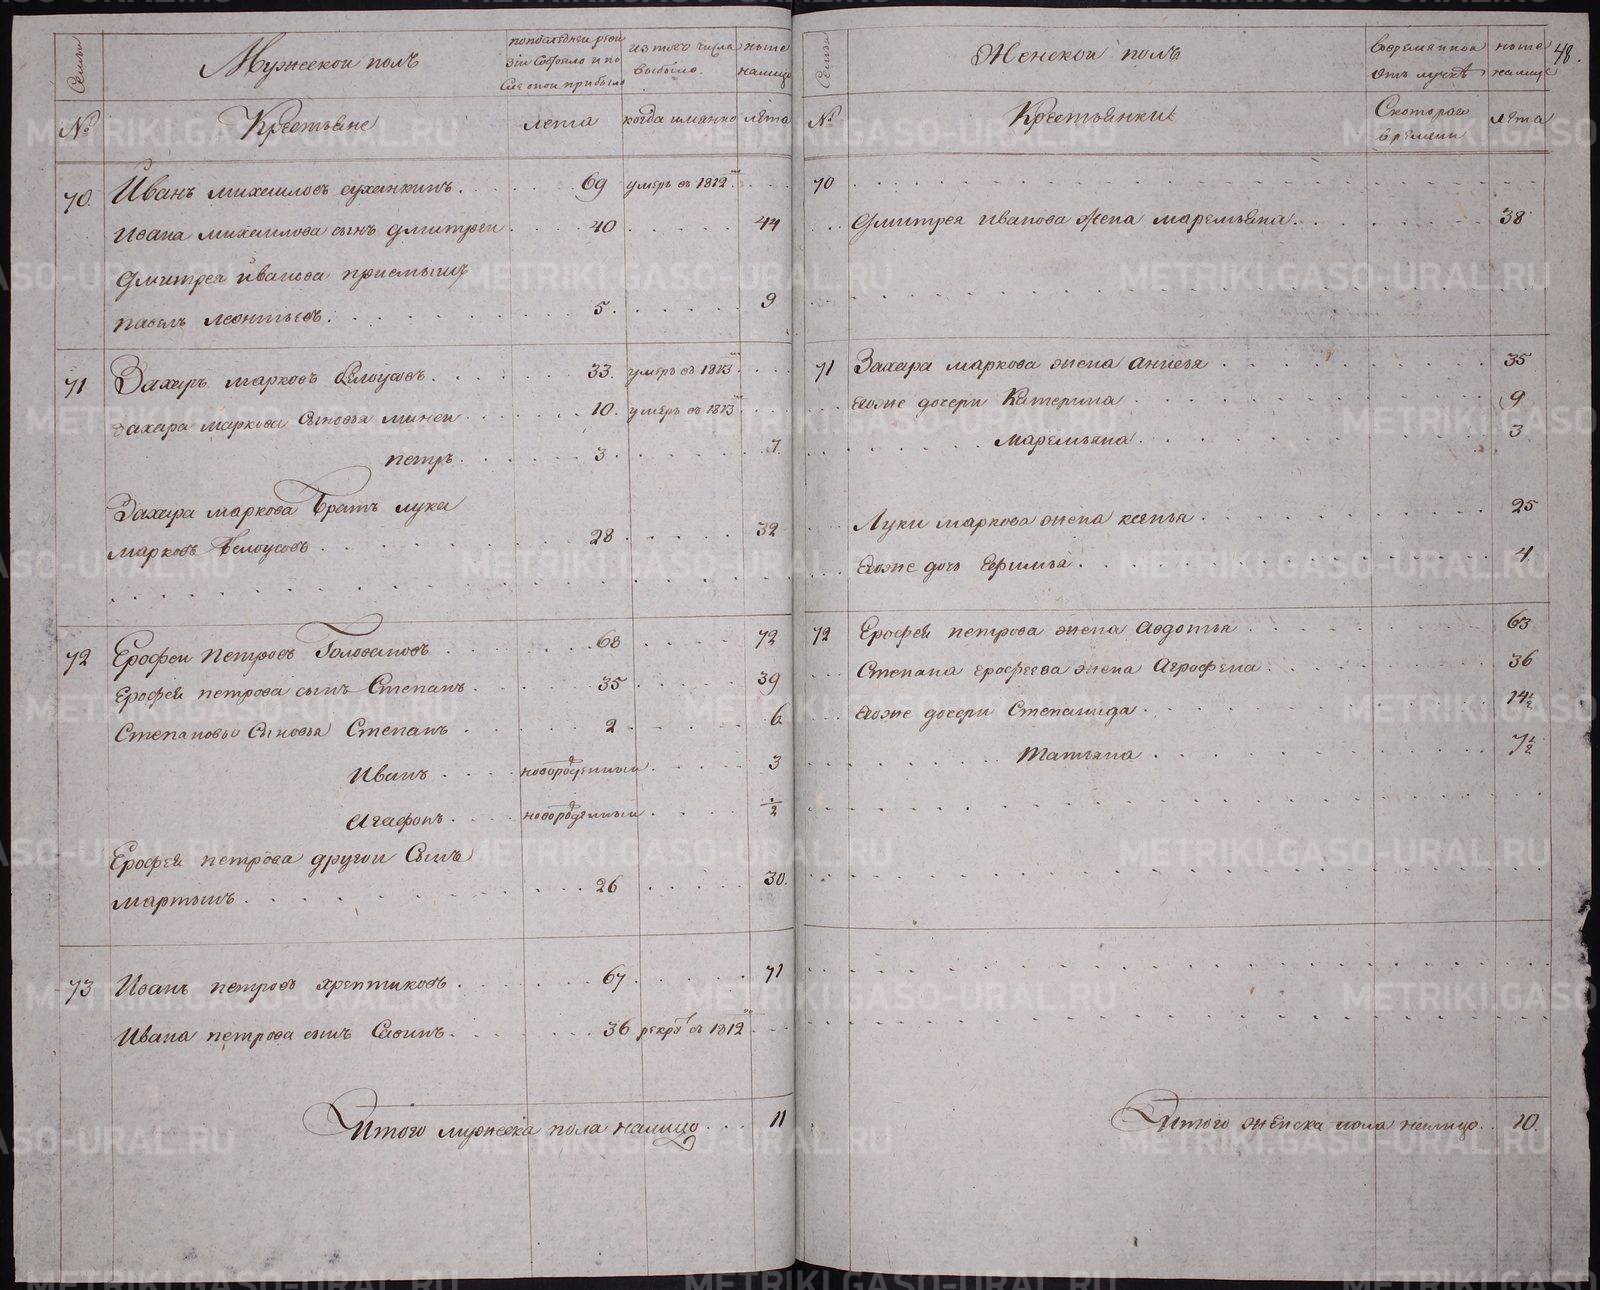 Семьи
Мужескои полъ
попоследнеи реви
зіи состояло и по
сле онои прибыло
из того числа
выбыло.
ныне
налицо
№
Крестьяне
лета
когда имянно
лѣта
70. Иванъ михаиловъ суханкинъ. 69 умеръ въ 1812мъ
Ивана михаилова сынъ дмитреи 40 44
Дмитрея иванова приемышъ
павелъ леонтьевъ. 5. 9
71 Захаръ марковъ белоусовъ. 33. умеръ въ 1813мъ
Захара маркова сыновья минеи 10. умеръ въ 1813мъ
петръ. 3 7.
Захара маркова братъ лука
марковъ белоусовъ. 28 32
72 Ерофеи петровъ Головановъ. 68 72
Ерофея петрова сынъ Степанъ. 35 39
Степановы сыновья Степанъ 2 6
Иванъ новорожденныи 3
Агафонъ новорожденныи 1/2
Ерофея петрова другои сынъ
мартынъ. 26 30.
73 Иванъ петровъ хрептиковъ. 67 71
Ивана петрова сынъ Савинъ. 36 рекру въ 1812мъ
Итого мужеска пола налицо 11
48.
Семьи
Женскои полъ
Вовременнои
отлучкѣ
ныне
налицо
№
Крестьянки
Скотораго
времяни
лѣта
70
Дмитрея иванова жена маремьяна. 38
71 Захара маркова жена анисья 35
Ихже дочери Катерина 9
маремьяна. 3
Луки маркова жена ксенья. 25
Ихже дочь Ефимья. 4
72 Ерофея петрова жена авдотья 63
Степана ерофеева жена Аграфена 36
Ихже дочери Степанида 14 1/2
татьяна 7 1/2
Итого женска пола налицо. 10.
METRIKI.GASO-URAL.RU